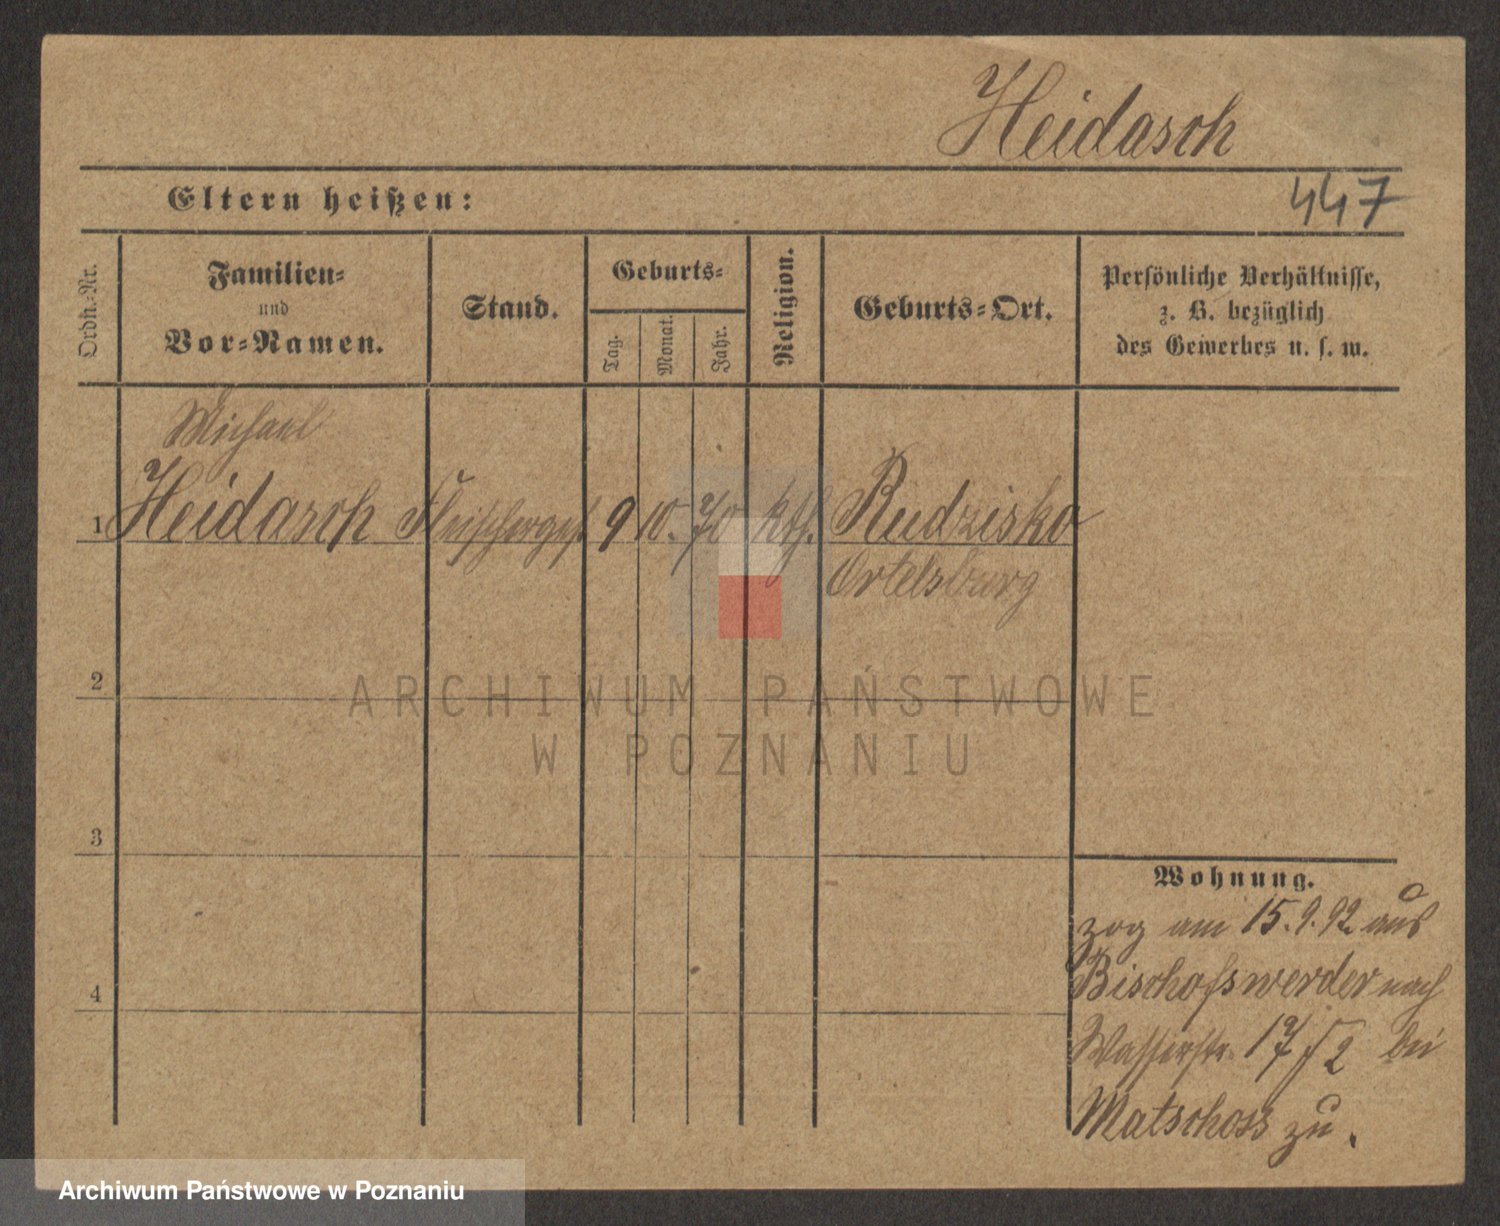 Heidasch
447
Eltern heißen:
Ordn.-Nr.
Familien-
und
Vor-Namen.
Stand.
Geburts-
Tag.
Monat.
Jahr.
Religion.
Geburts-Ort.
Persönliche Verhältnisse,
z. B. bezüglich
des Gewerbes u. s. w.
Michael
1 Heidasch Fleischerges. 9 10. 70 kth. Rudzisko
Ortelsburg
2
ARCHIWUM PAŃSTWOWE
W POZNANIU
3
Wohnung.
zog am 15.9.92 aus
Bischofswerder nach
4
Wasserstr. 17/ 2 bei
Matschoss zu.
Archiwum Państwowe w Poznaniu